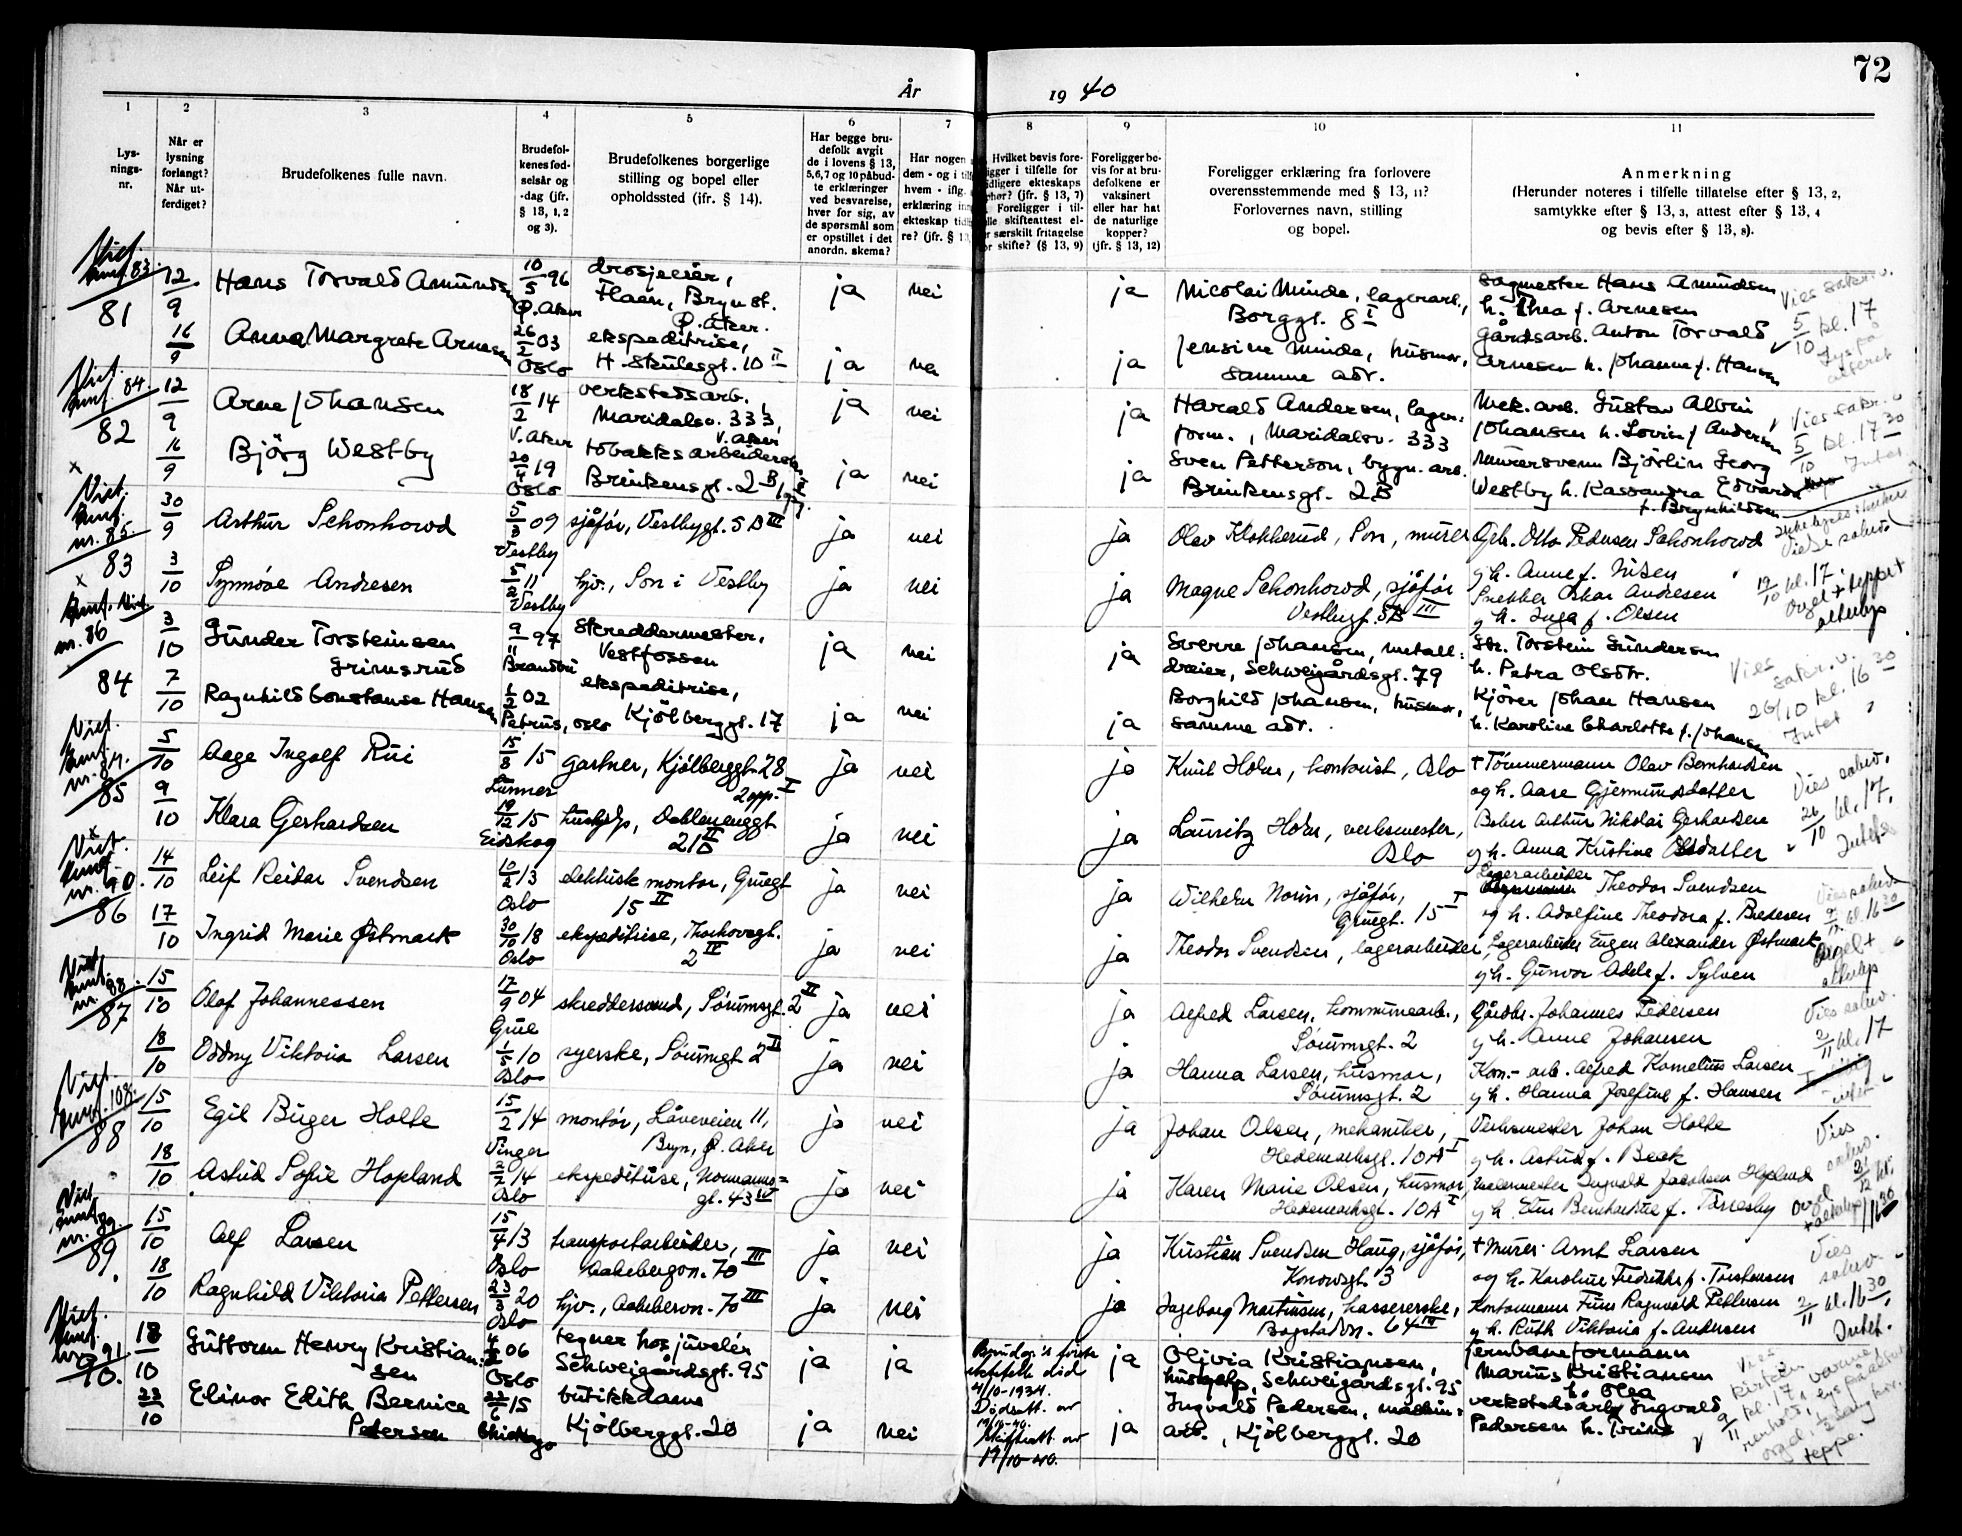 72
År 1940
1 2 3 4 5 6 7 8 9 10 11
Lys-
nings-
nr.
Når er
lysning
forlangt?
Når ut-
ferdiget?
Brudefolkenes fulle navn.
Brudefol-
kenes fød-
selsår og
-dag (jfr.
§ 13, 1, 2
og 3).
Brudefolkenes borgerlige
stilling og bopel eller
opholdssted (jfr. § 14).
Har begge bru-
defolk avgit
de i lovens § 13,
5,6,7 og 10 påbud-
te erklæringer
ved besvarelse,
hver for sig, av
de spørsmål som
er opstillet i det
anordn. skema?
Har nogen
dem - og i tilf
hvem - iflg.
erklæring
ekteskap tid
re? (jfr. § 13,
Hvilket bevis fore-
ligger i tilfelle for
tidligere ekteskaps
ophør? (jfr. § 13, 7)
Foreligger i til-
felle skifteattest el-
er særskilt fritagelse
for skifte? (§ 13, 9)
Foreligger be-
vis for at bru-
defolkene er
vaksinert
eller har hat
de naturlige
kopper?
(jfr. § 13, 12)
Foreligger erklæring fra forlovere
overensstemmende med § 13, 11?
Forlovernes navn, stilling
og bopel.
Anmerkning
(Herunder noteres i tilfelle tillatelse efter § 13, 2,
samtykke efter § 13, 3, attest efter § 13, 4
og bevis efter § 13, 8).
Viet. 83.
81 12/9 Hans Torvald Amundsen 10/5 96 Ø. Aker drosjeeier, Flaen, Bryn st. Ø. Aker. ja nei ja Nicolai Minde, lagerarb., Borggt. 8 I Sagmester Hans Amundsen h. Thea f. Arnesen
16/9 Anna Margrete Arnesen 26/2 03 Oslo ekspeditrise, H. Skulesgt. 10 II ja nei ja Jensine Minde, husmor, samme adr. Gårdsarb. Anton Torvald Arnesen h. Johanne f. Hansen
Vies sakr. v. 5/10 kl. 17 Lys på alteret
Viet 84.
82 12/9 Arne Johansen 18/2 14 V. Aker verkstedsarb., Maridalsv. 333, V. Aker ja nei ja Harald Andersen, lager- form., Maridalsv. 333 Mek. arb. Gustav Alvin Johansen h. Lovin f Andersen
16/9 Björg Westby 20/4 19 Oslo tobakksarbeiderske Brinkensgt. 2 B ja nei ja Sven Petterson, bygn. arb. Brinkensgt. 2B Murersvenn Björlin Georg Westby h. Kassandra Edvarda f. Brynhildsen
Vies sakr. v 5/10 kl. 17 30 Intet
Viet. nr. 85.
83 30/9 Arthur Schonhowd 5/3 09 Vestby sjåför, Vestbygt. 5 B III ja nei ja Olav Klokkerud, Son, murer Gbr. Otto Pedersen Schonhowd g h. Anne f. Nilsen
3/10 Synnöve Andresen 5/2 11 Vestby hjv., Son i Vestby ja nei ja Magne Schonhowd, sjåför Vestbygt. 5B III Snekker Oskar Andresen g h. Inga f. Olsen
19/10 kl. 17. Orgel + teppet alterlys
Viet nr. 86
84 3/10 Gunder Torsteinsen Grimsrud 9/11 97 Brandbu Skreddermester, Vestfossen ja nei ja Sverre Johansen, metall- dreier, Schweigårdsgt. 79 Gbr. Torstein Gundersen h. Petra Olsdtr.
7/10 Ragnhild Constanse Hansen 1/2 02 Petrus, Oslo ekspeditrise, Kjölberggt. 17 ja nei ja Borghild Johansen, husmor, samme adr. Kjörer Johan Hansen h. Karoline Charlotte f. Johansen
Vies sakr. v. 26/10 kl. 16 30 Intet
Viet. nr. 87.
85 5/10 Aage Ingolf Rui 15/8 15 Lunner gartner, Kjölberggt. 28 2 opp. I ja nei ja Knut Holm, kontorist, Oslo † Tömmermann Olav Bernhardsen og h. Aase Gjermundsdatter
9/10 Klara Gerhardsen 19/12 15 Eidskog hushjelp, Dahlenenggt 21 B II ja nei ja Lauritz Holm, verksmester, Oslo Baker Arthur Nikolai Gerhardsen g h. Anna Kristine Olsdatter
Vies sakrv. 26/10 kl. 17. Intet
Viet. nr. 90.
86 14/10 Leif Reidar Svendsen 10/2 13 Oslo elektrisk montör, Gruegt 15 II ja nei ja Wilhelm Norin, sjåför, Gruegt. 15 I Lagerarbeider Theodor Svendsen og h. Adolfine Theodora f. Pedersen
17/10 Ingrid Marie Østmark 30/10 18 Oslo ekspeditrise, 2 IV ja nei ja Theodor Svendsen, lagerarbeider, Lagerarbeider Eugen Alexander Østmark g h. Gunvor Adele f. Sylven
Vies sakrv. kl. 16 30 Orgel + alterlys
Viet nr. 88.
87 15/10 Olaf Johannessen 17/9 04 Grue skreddersvend, Sörumsgt. 2 II ja nei ja Alfred Larsen, kommunearb., Sörumsgt. 2 Gårdbr. Johannes Pedersen g h. Anne Johansen
18/10 Oddny Viktoria Larsen 1/5 10 Oslo syerske, Sörumgt 2 II ja nei ja Hanna Larsen, husmor, Sörumsgt. 2 Kom.- arb. Alfred Kornelius Larsen g h. Hanna Josefine f. Hansen
Vies sakrv. 2/11 kl. 17 intet
Viet. 108.
88 15/10 Egil Birger Holte 15/2 14 Vinger montör, Låveveien 11, Bryn, Ø. Aker ja nei ja Johan Olsen, mekaniker, Hedemarksgt. 10 A I Verksmester Johan Holte g h. Astrid f. Beck
18/10 Astrid Sofie Hopland 2/2 14 Oslo ekspeditrise, Normanns= gt. 43 IV ja nei ja Karen Marie Olsen, husmor, Hedemarksgt. 10A I Malermester Ingvald Jacobsen Hopland g h. Elna Bernhardine f. Tårresby
Vies sakrv. 21/12 kl. 16 30 Orgel + alterlys
Viet nr. 89.
89 15/10 Alf Larsen 15/4 13 Oslo transportarbeider, Aakebergvn. 70 III ja nei ja Kristian Svendsen Haug, sjåför, Konowsgt. 3 † Murer Arnt Larsen og h. Karoline Fredrikke f. Torstensen
18/10 Ragnhild Viktoria Pettersen 23/3 20 Oslo hjv., Aakebervn. 70 III ja nei ja Ingeborg Martinsen, kassererske, Bogstadvn. 64 III Kontormann Finn Ragnvald Pettersen g h. Ruth Viktoria f. Andersen
Vies sakrv. 2/11 kl. 16 30. Intet.
Viet. nr. 91.
90. 18/10 Guttorm Henry Kristian- sen 06 Oslo tegner hos juvelér Schweigårdsgt. 95 ja ja Brudgom's første ektefelle död 4/10-1934. Dödsatt. av Skifteatt. av 19/10-40. ja Olivia Kristiansen, hushjelp, Schweigårdsgt. 95 Jernbaneformann Marius Kristiansen h. Olea
22/10 Elinor Edith Bernice Petersen 22/6 15 Chicago butikkdame Kjölberggt. 20 ja nei ja Ingvald Pedersen, maskin- arb., Kjölberggt. 20 verkstedsarb. Ingvald Pedersen h. Trine
Vies kirken 9/11 kl. 17, varme, renhold, lys på alter orgel, teppe.